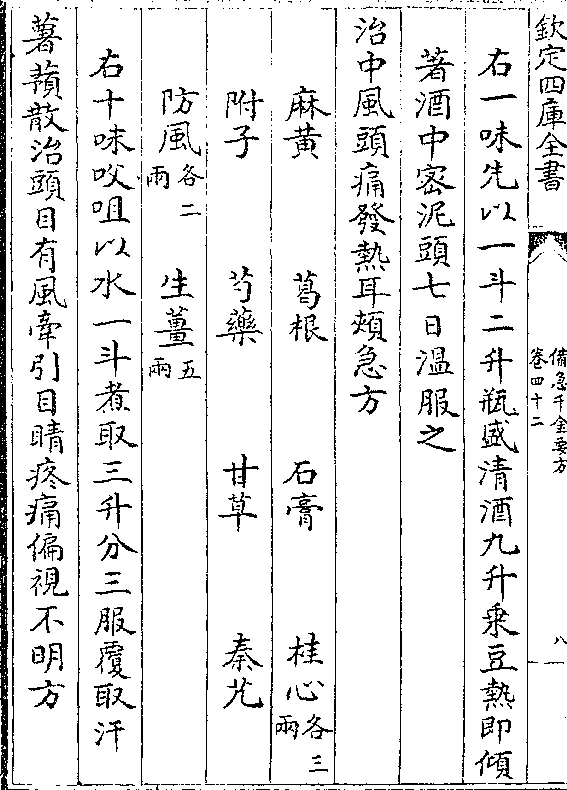 欽定四庫全書
備急千金要方
卷四十二
八
右一味先以一斗二升瓶盛清酒九升乘豆熱即傾
著酒中密泥頭七日溫服之
治中風頭痛發熱耳頰急方
麻黃 葛根 石膏 桂心各三兩
附子 芍藥 甘草 秦艽
防風各二兩 生薑五兩
右十味㕮咀以水一斗煮取三升分三服覆取汗
薯蕷散治頭目有風牽引目睛疼痛偏視不明方